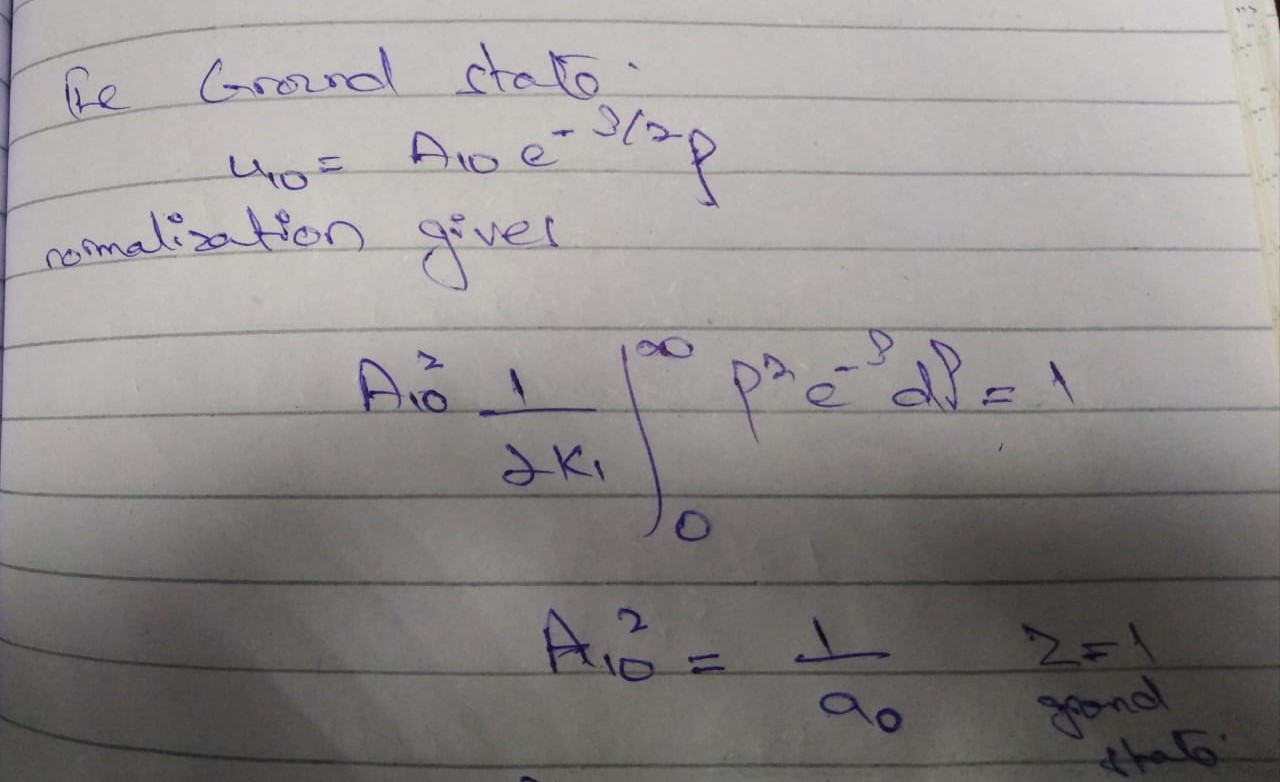 The Ground state.
u₁₀ = A₁₀ e^{-ρ/2} ρ
normalization gives
A₁₀² 1/2K₁ ∫₀^∞ ρ² e^{-ρ} dρ = 1
A₁₀² = 1/a₀ Z=1
ground
state.